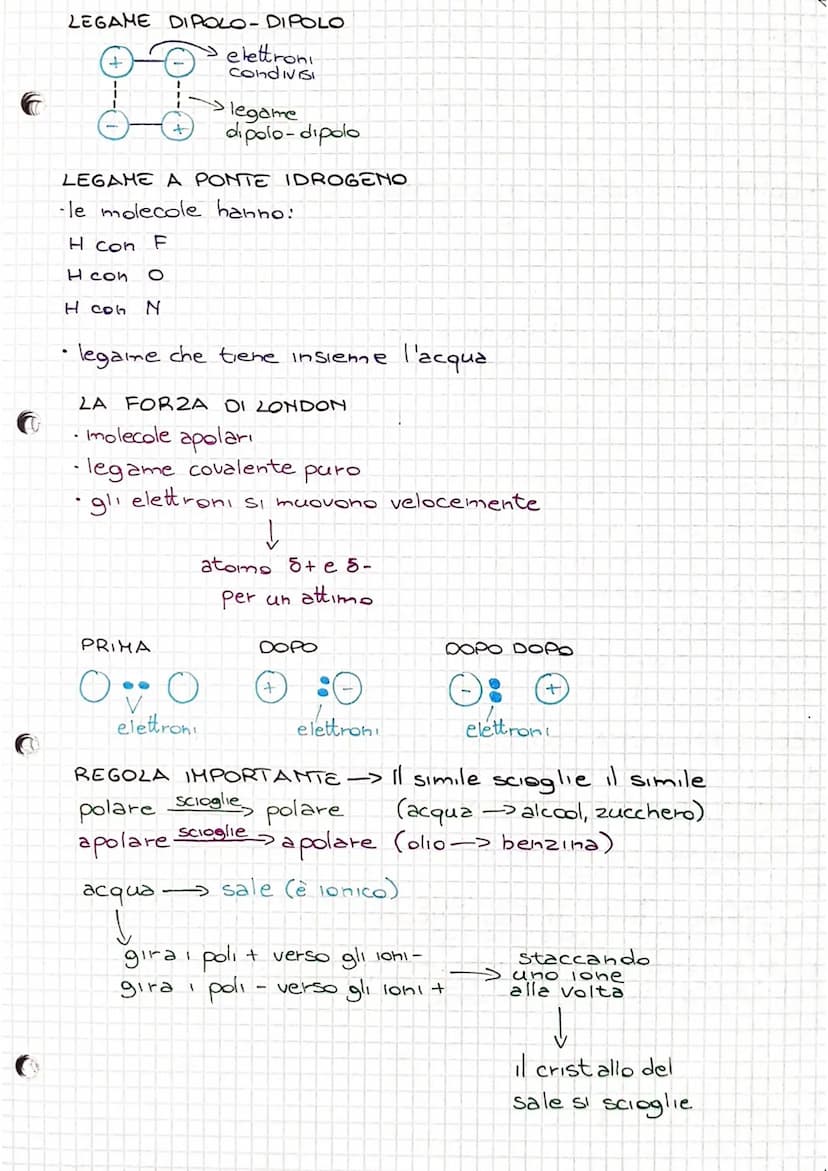 LEGAME DIPOLO-DIPOLO
+ - elettroni
condivisi
legame
- + dipolo-dipolo
LEGAME A PONTE IDROGENO
·le molecole hanno:
H con F
H con O
H con N
· legame che tiene insieme l'acqua
LA FORZA DI LONDON
· molecole apolari
· legame covalente puro
· gli elettroni si muovono velocemente
↓
atomo δ+ e δ-
per un attimo
PRIMA DOPO DOPO DOPO
+ - - +
elettroni elettroni elettroni
REGOLA IMPORTANTE → Il simile scioglie il simile
polare scioglie→ polare (acqua → alcool, zucchero)
apolare scioglie→ apolare (olio → benzina)
acqua → sale (è ionico)
↓
gira i poli + verso gli ioni -
gira i poli - verso gli ioni +
→ staccando
uno ione
alla volta
↓
il cristallo del
sale si scioglie